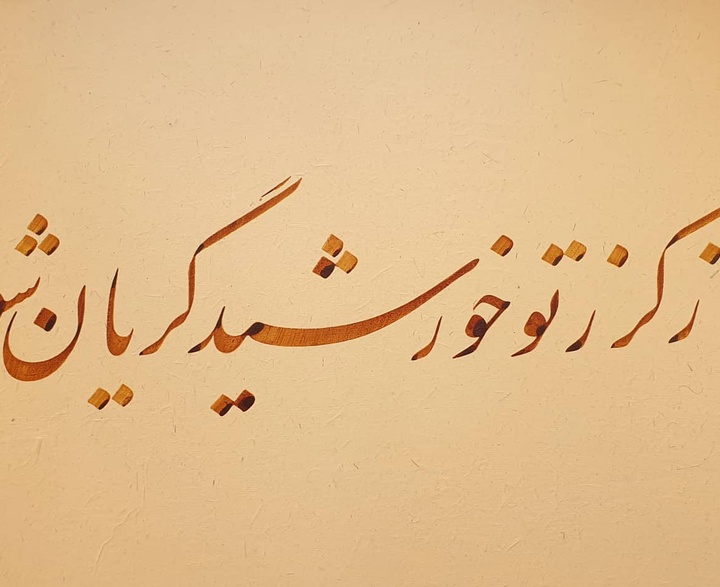 گر ز تو خورشید گریان